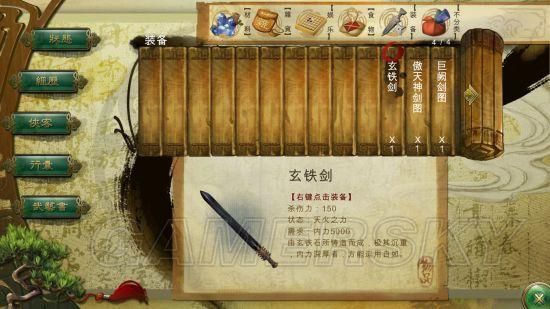 【材料】
【雜貨】
【娱乐】
【食物】
【装备】
【不分类】
4/4
狀態
經歷
俠客
行囊
武藝書
装备
玄铁剑
X1
傲天神剑图
X1
巨阙剑图
X1
玄铁剑
【右键点击装备】
杀伤力：150
状态：天火之力
需求：内力5000
由玄铁石所铸造而成，极其沉重
，内力深厚者，方能运用自如。
物品
GAMERSKY